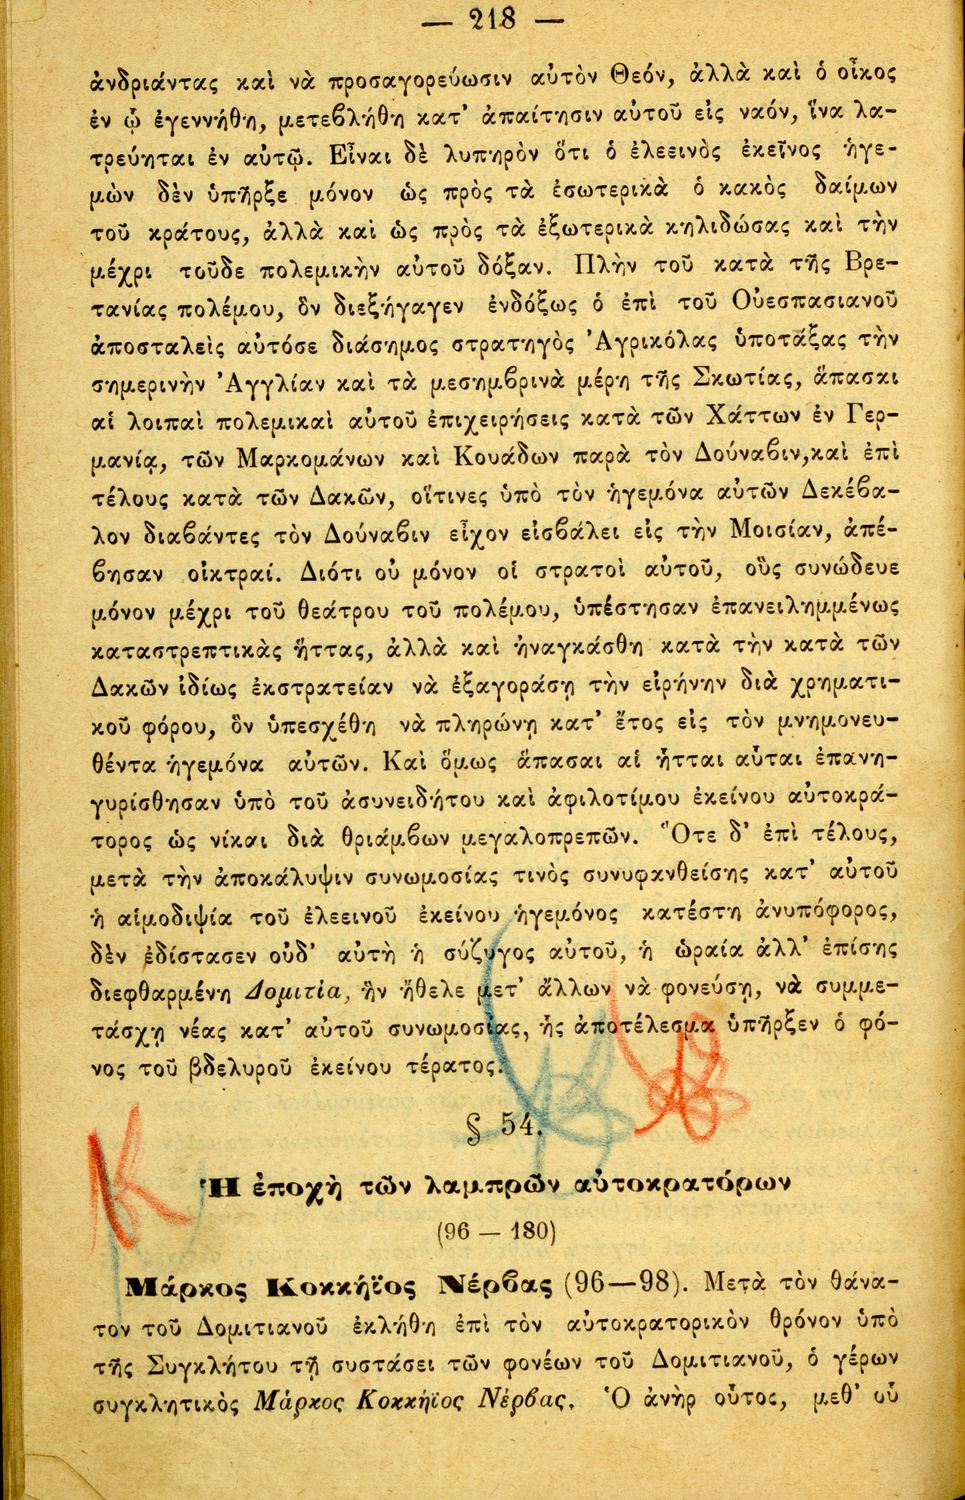 — 218 —
ἀνδριάντας καὶ νὰ προσαγορεύωσιν αὐτὸν Θεόν, ἀλλὰ καὶ ὁ οἶκος
ἐν ᾧ ἐγεννήθη, μετεβλήθη κατ' ἀπαίτησιν αὐτοῦ εἰς ναόν, ἵνα λα-
τρεύηται ἐν αὐτῷ. Εἶναι δὲ λυπηρὸν ὅτι ὁ ἐλεεινὸς ἐκεῖνος ἡγε-
μὼν δὲν ὑπῆρξε μόνον ὡς πρὸς τὰ ἐσωτερικὰ ὁ κακὸς δαίμων
τοῦ κράτους, ἀλλὰ καὶ ὡς πρὸς τὰ ἐξωτερικὰ κηλιδώσας καὶ τὴν
μέχρι τοῦδε πολεμικὴν αὐτοῦ δόξαν. Πλὴν τοῦ κατὰ τῆς Βρε-
τανίας πολέμου, ὃν διεξήγαγεν ἐνδόξως ὁ ἐπὶ τοῦ Οὐεσπασιανοῦ
ἀποσταλεὶς αὐτόσε διάσημος στρατηγὸς Ἀγρικόλας ὑποτάξας τὴν
σημερινὴν Ἀγγλίαν καὶ τὰ μεσημβρινὰ μέρη τῆς Σκωτίας, ἅπασαι
αἱ λοιπαὶ πολεμικαὶ αὐτοῦ ἐπιχειρήσεις κατὰ τῶν Χάττων ἐν Γερ-
μανίᾳ, τῶν Μαρκομάνων καὶ Κουάδων παρὰ τὸν Δούναβιν,καὶ ἐπὶ
τέλους κατὰ τῶν Δακῶν, οἵτινες ὑπὸ τὸν ἡγεμόνα αὐτῶν Δεκέβα-
λον διαβάντες τὸν Δούναβιν εἶχον εἰσβάλει εἰς τὴν Μοισίαν, ἀπέ-
βησαν οἰκτραί. Διότι οὐ μόνον οἱ στρατοὶ αὐτοῦ, οὓς συνώδευε
μόνον μέχρι τοῦ θεάτρου τοῦ πολέμου, ὑπέστησαν ἐπανειλημμένως
καταστρεπτικὰς ἥττας, ἀλλὰ καὶ ἠναγκάσθη κατὰ τὴν κατὰ τῶν
Δακῶν ἰδίως ἐκστρατείαν νὰ ἐξαγοράσῃ τὴν εἰρήνην διὰ χρηματι-
κοῦ φόρου, ὃν ὑπεσχέθη νὰ πληρώνῃ κατ' ἔτος εἰς τὸν μνημονευ-
θέντα ἡγεμόνα αὐτῶν. Καὶ ὅμως ἅπασαι αἱ ἧτται αὗται ἐπανη-
γυρίσθησαν ὑπὸ τοῦ ἀσυνειδήτου καὶ ἀφιλοτίμου ἐκείνου αὐτοκρά-
τορος ὡς νίκαι διὰ θριάμβων μεγαλοπρεπῶν. Ὅτε δ' ἐπὶ τέλους,
μετὰ τὴν ἀποκάλυψιν συνωμοσίας τινὸς συνυφανθείσης κατ' αὐτοῦ
ἡ αἱμοδιψία τοῦ ἐλεεινοῦ ἐκείνου ἡγεμόνος κατέστη ἀνυπόφορος,
δὲν ἐδίστασεν οὐδ' αὐτὴ ἡ σύζυγος αὐτοῦ, ἡ ὡραία ἀλλ' ἐπίσης
διεφθαρμένη Δομιτία, ἣν ἤθελε μετ' ἄλλων νὰ φονεύσῃ, νὰ συμμε-
τάσχῃ νέας κατ' αὐτοῦ συνωμοσίας, ἧς ἀποτέλεσμα ὑπῆρξεν ὁ φό-
νος τοῦ βδελυροῦ ἐκείνου τέρατος.
§ 54.
Ἡ ἐποχὴ τῶν λαμπρῶν αὐτοκρατόρων
(96 — 180)
Μάρκος Κοκκήϊος Νέρβας (96—98). Μετὰ τὸν θάνα-
τον τοῦ Δομιτιανοῦ ἐκλήθη ἐπὶ τὸν αὐτοκρατορικὸν θρόνον ὑπὸ
τῆς Συγκλήτου τῇ συστάσει τῶν φονέων τοῦ Δομιτιανοῦ, ὁ γέρων
συγκλητικὸς Μάρκος Κοκκήϊος Νέρβας. Ὁ ἀνὴρ οὗτος, μεθ' οὗ